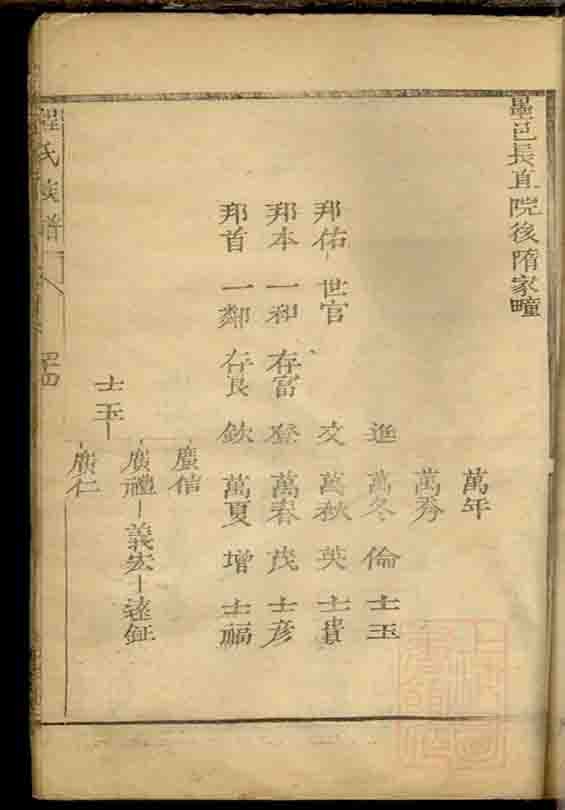 墨邑長直院後隋家疃
萬年
萬秀
進 萬冬 倫 士玉
邦佑 世官 文 萬秋 英 士貴
邦本 一和 存富 登 萬春 茂 士彥
邦首 一鄰 存良 欽 萬夏 增 士福
廣信
士玉 廣禮 義宏 遠鉦
廣仁
程氏族譜